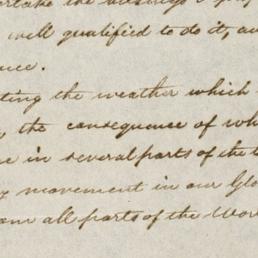 well qualified to do it, an
nce.
ting the weather which
, the consequence of wh
e in several parts of the
y movement in our Glo
om all parts of the Wor